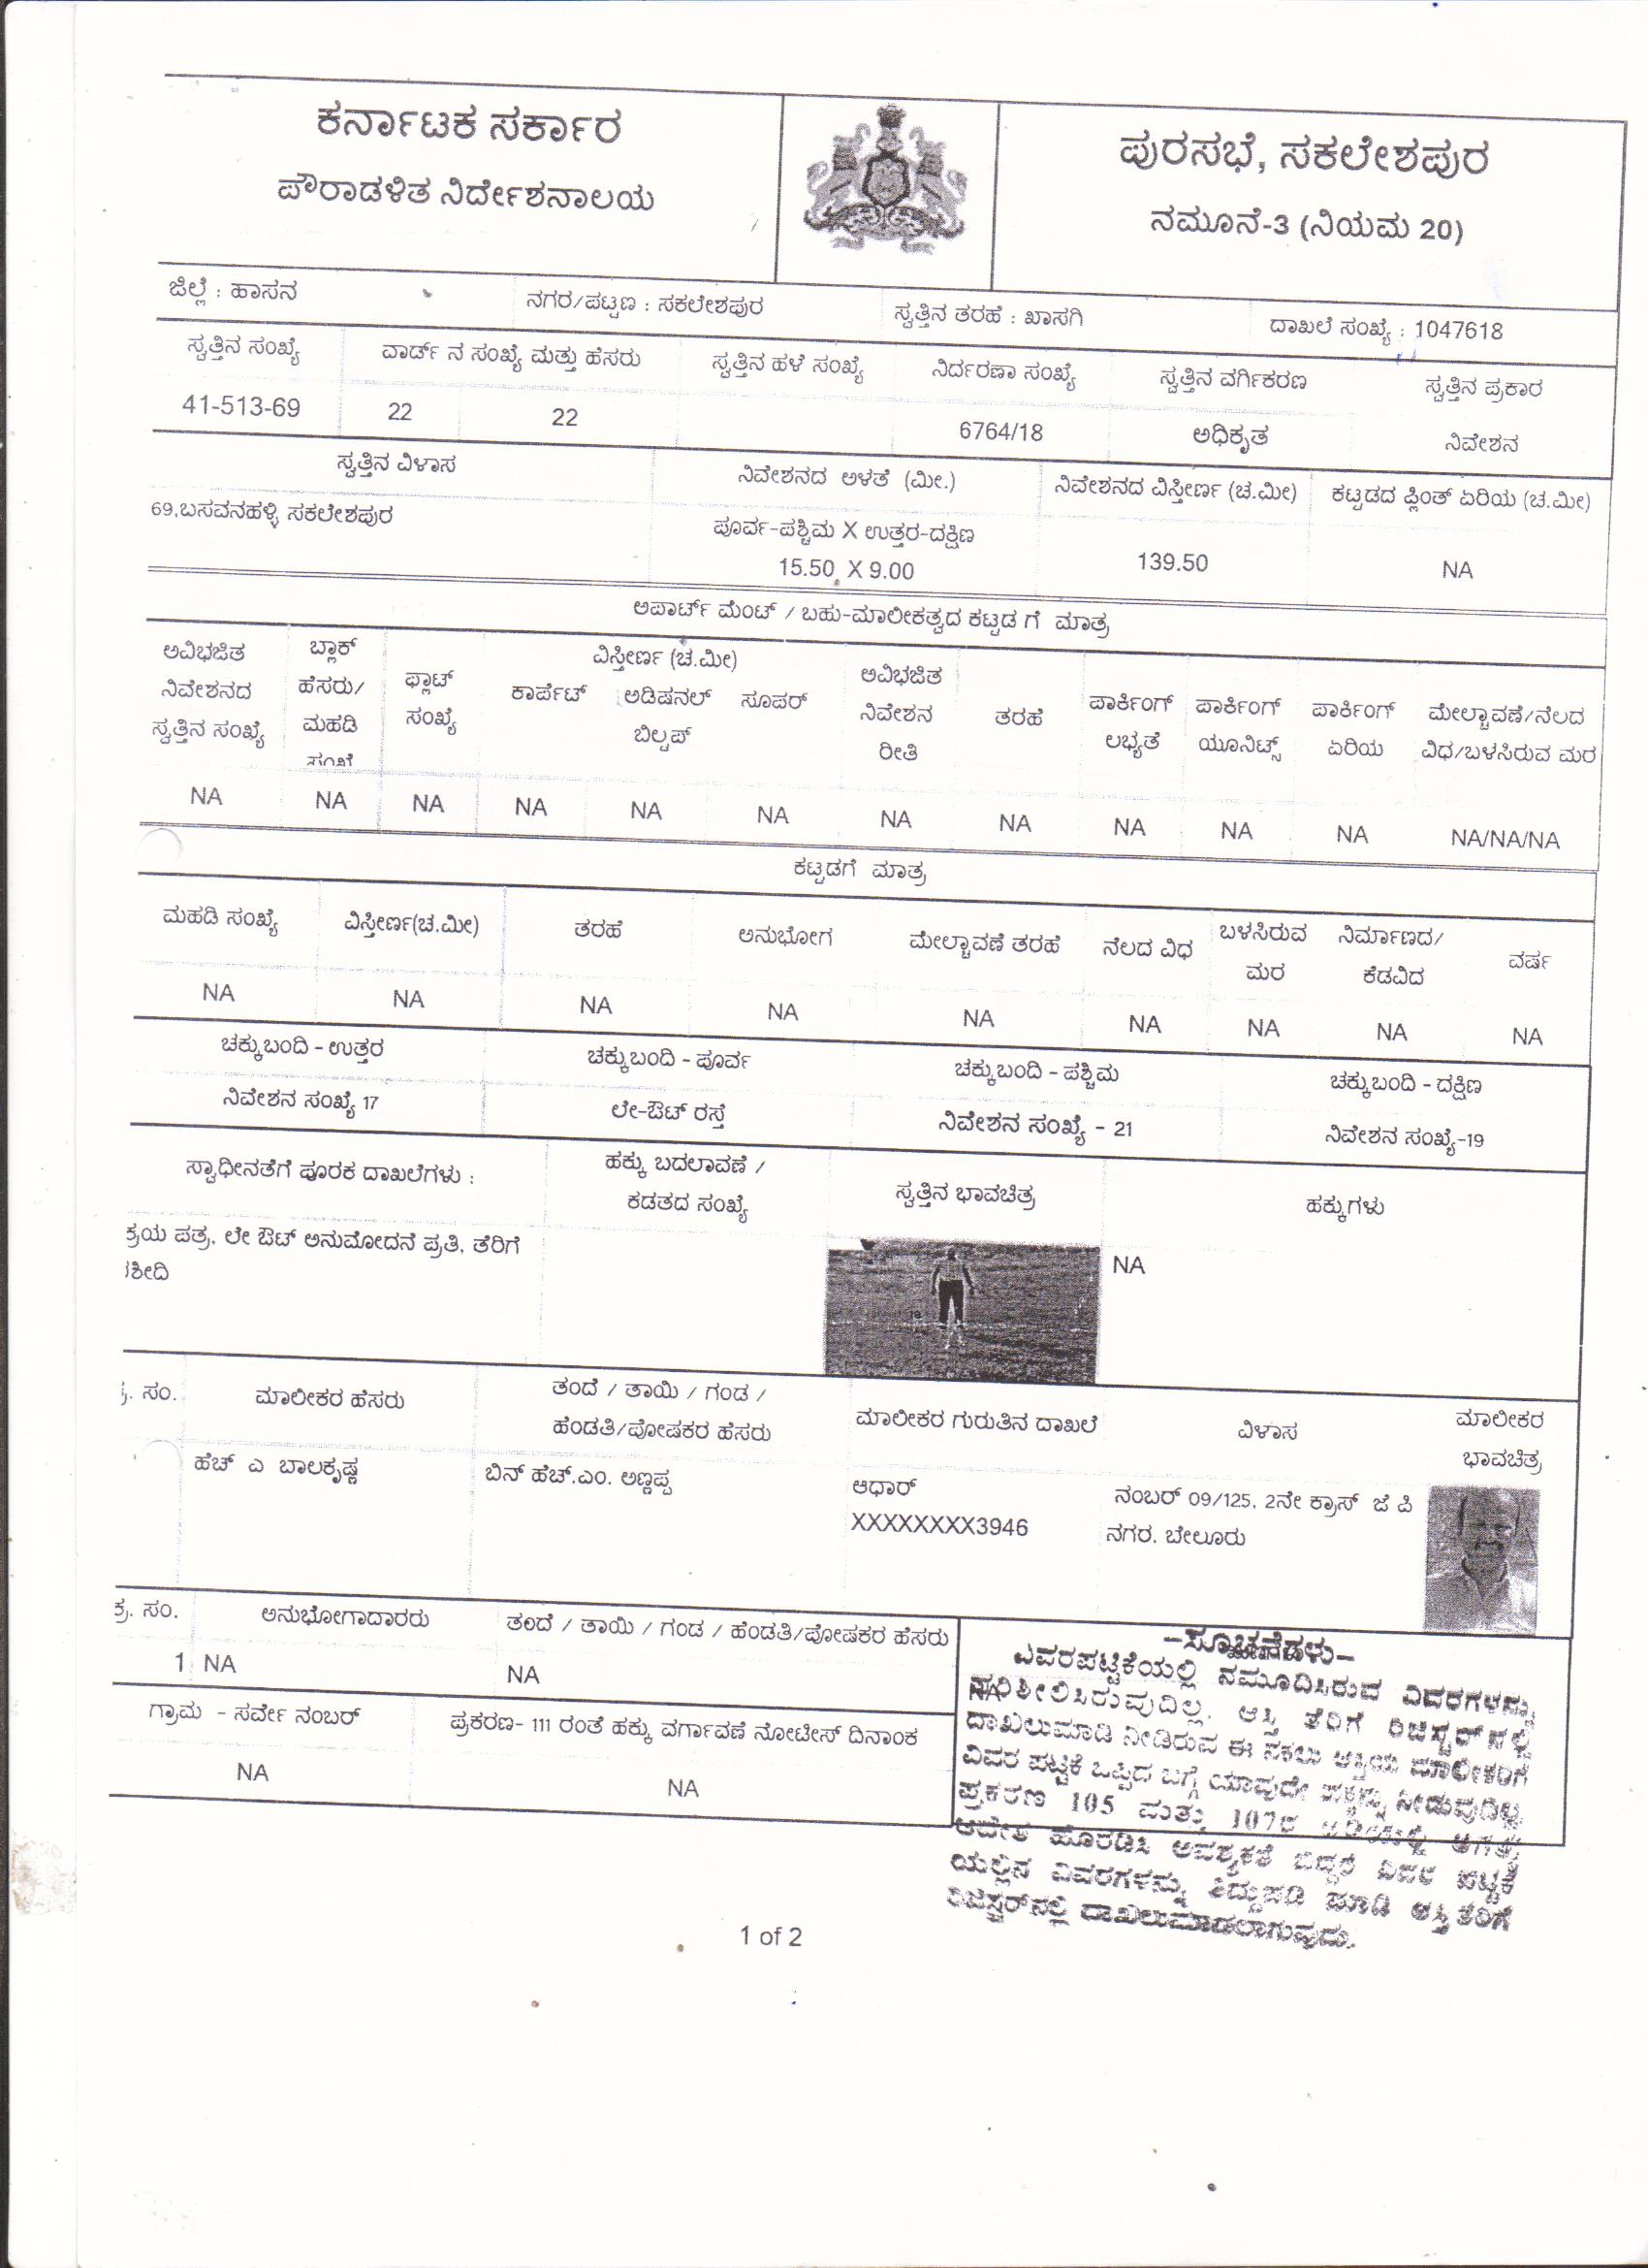 ಕರ್ನಾಟಕ ಸರ್ಕಾರ
ಪೌರಾಡಳಿತ ನಿರ್ದೇಶನಾಲಯ
ಪುರಸಭೆ, ಸಕಲೇಶಪುರ
ನಮೂನೆ-3 (ನಿಯಮ 20)
ಜಿಲ್ಲೆ : ಹಾಸನ ನಗರ/ಪಟ್ಟಣ : ಸಕಲೇಶಪುರ ಸ್ವತ್ತಿನ ತರಹೆ : ಖಾಸಗಿ ದಾಖಲೆ ಸಂಖ್ಯೆ : 1047618
ಸ್ವತ್ತಿನ ಸಂಖ್ಯೆ ವಾರ್ಡ್ ನ ಸಂಖ್ಯೆ ಮತ್ತು ಹೆಸರು ಸ್ವತ್ತಿನ ಹಳೆ ಸಂಖ್ಯೆ ನಿರ್ದರಣಾ ಸಂಖ್ಯೆ ಸ್ವತ್ತಿನ ವರ್ಗಿಕರಣ ಸ್ವತ್ತಿನ ಪ್ರಕಾರ
41-513-69 22 22 6764/18 ಅಧಿಕೃತ ನಿವೇಶನ
ಸ್ವತ್ತಿನ ವಿಳಾಸ ನಿವೇಶನದ ಅಳತೆ (ಮೀ.) ನಿವೇಶನದ ವಿಸ್ತೀರ್ಣ (ಚ.ಮೀ) ಕಟ್ಟಡದ ಪ್ಲಿಂತ್ ಏರಿಯ (ಚ.ಮೀ)
69,ಬಸವನಹಳ್ಳಿ ಸಕಲೇಶಪುರ ಪೂರ್ವ-ಪಶ್ಚಿಮ X ಉತ್ತರ-ದಕ್ಷಿಣ
15.50 X 9.00 139.50 NA
ಅಪಾರ್ಟ್ ಮೆಂಟ್ / ಬಹು-ಮಾಲೀಕತ್ವದ ಕಟ್ಟಡ ಗೆ ಮಾತ್ರ
ಅವಿಭಜಿತ ಬ್ಲಾಕ್ ವಿಸ್ತೀರ್ಣ (ಚ.ಮೀ) ಅವಿಭಜಿತ
ನಿವೇಶನದ ಹೆಸರು/ ಫ್ಲಾಟ್ ಕಾರ್ಪೆಟ್ ಅಡಿಷನಲ್ ಸೂಪರ್ ನಿವೇಶನ ತರಹೆ ಪಾರ್ಕಿಂಗ್ ಪಾರ್ಕಿಂಗ್ ಪಾರ್ಕಿಂಗ್ ಮೇಲ್ಚಾವಣೆ/ನೆಲದ
ಸ್ವತ್ತಿನ ಸಂಖ್ಯೆ ಮಹಡಿ ಸಂಖ್ಯೆ ಬಿಲ್ಟಪ್ ರೀತಿ ಲಭ್ಯತೆ ಯೂನಿಟ್ಸ್ ಏರಿಯ ವಿಧ/ಬಳಸಿರುವ ಮರ
ಸಂಖ್ಯೆ
NA NA NA NA NA NA NA NA NA NA NA NA/NA/NA
ಕಟ್ಟಡಗೆ ಮಾತ್ರ
ಮಹಡಿ ಸಂಖ್ಯೆ ವಿಸ್ತೀರ್ಣ(ಚ.ಮೀ) ತರಹೆ ಅನುಭೋಗ ಮೇಲ್ಚಾವಣೆ ತರಹೆ ನೆಲದ ವಿಧ ಬಳಸಿರುವ ನಿರ್ಮಾಣದ/ ವರ್ಷ
ಮರ ಕೆಡವಿದ
NA NA NA NA NA NA NA NA NA
ಚಕ್ಕುಬಂದಿ - ಉತ್ತರ ಚಕ್ಕುಬಂದಿ - ಪೂರ್ವ ಚಕ್ಕುಬಂದಿ - ಪಶ್ಚಿಮ ಚಕ್ಕುಬಂದಿ - ದಕ್ಷಿಣ
ನಿವೇಶನ ಸಂಖ್ಯೆ 17 ಲೇ-ಔಟ್ ರಸ್ತೆ ನಿವೇಶನ ಸಂಖ್ಯೆ - 21 ನಿವೇಶನ ಸಂಖ್ಯೆ-19
ಸ್ವಾಧೀನತೆಗೆ ಪೂರಕ ದಾಖಲೆಗಳು : ಹಕ್ಕು ಬದಲಾವಣೆ / ಸ್ವತ್ತಿನ ಭಾವಚಿತ್ರ ಹಕ್ಕುಗಳು
ಕಡತದ ಸಂಖ್ಯೆ
ಕ್ರಯ ಪತ್ರ, ಲೇ ಔಟ್ ಅನುಮೋದನೆ ಪ್ರತಿ, ತೆರಿಗೆ NA
ಶೀದಿ
ಸಂ. ಮಾಲೀಕರ ಹೆಸರು ತಂದೆ / ತಾಯಿ / ಗಂಡ / ಮಾಲೀಕರ ಗುರುತಿನ ದಾಖಲೆ ವಿಳಾಸ ಮಾಲೀಕರ
ಹೆಂಡತಿ/ಪೋಷಕರ ಹೆಸರು ಭಾವಚಿತ್ರ
ಹೆಚ್ ಎ ಬಾಲಕೃಷ್ಣ ಬಿನ್ ಹೆಚ್.ಎಂ. ಅಣ್ಣಪ್ಪ ಆಧಾರ್ ನಂಬರ್ 09/125, 2ನೇ ಕ್ರಾಸ್ ಜೆ ಪಿ
XXXXXXXX3946 ನಗರ, ಬೇಲೂರು
ಕ್ರ. ಸಂ. ಅನುಭೋಗಾದಾರರು ತಂದೆ / ತಾಯಿ / ಗಂಡ / ಹೆಂಡತಿ/ಪೋಷಕರ ಹೆಸರು
1 NA NA NA
ಗ್ರಾಮ - ಸರ್ವೇ ನಂಬರ್ ಪ್ರಕರಣ- 111 ರಂತೆ ಹಕ್ಕು ವರ್ಗಾವಣೆ ನೋಟೀಸ್ ದಿನಾಂಕ
NA NA
-ಸೂಚನೆಗಳು-
ವಿವರಪಟ್ಟಿಕೆಯಲ್ಲಿ ನಮೂದಿಸಿರುವ ವಿವರಗಳನ್ನು
ಪರಿಶೀಲಿಸಿರುವುದಿಲ್ಲ. ಆಸ್ತಿ ತೆರಿಗೆ ರಿಜಿಸ್ಟರ್‌ನಲ್ಲಿ
ದಾಖಲುಮಾಡಿ ನೀಡಿರುವ ಈ ನಕಲು ಆಸ್ತಿಯ ಮಾಲೀಕರಿಗೆ
ವಿವರ ಪಟ್ಟಿಕೆ ಒಪ್ಪಿದ ಬಗ್ಗೆ ಯಾವುದೇ ಹಕ್ಕನ್ನು ನೀಡುವುದಿಲ್ಲ.
ಪ್ರಕರಣ 105 ಮತ್ತು 107ರ
ಆದೇಶ ಹೊರಡಿಸಿ ಅವಶ್ಯಕತೆ ಬಿದ್ದರೆ ವಿವರ ಪಟ್ಟಿಕೆ
ಯಲ್ಲಿನ ವಿವರಗಳನ್ನು ತಿದ್ದುಪಡಿ ಮಾಡಿ ಆಸ್ತಿ ತೆರಿಗೆ
ರಿಜಿಸ್ಟರ್‌ನಲ್ಲಿ ದಾಖಲುಮಾಡಲಾಗುವುದು.
1 of 2